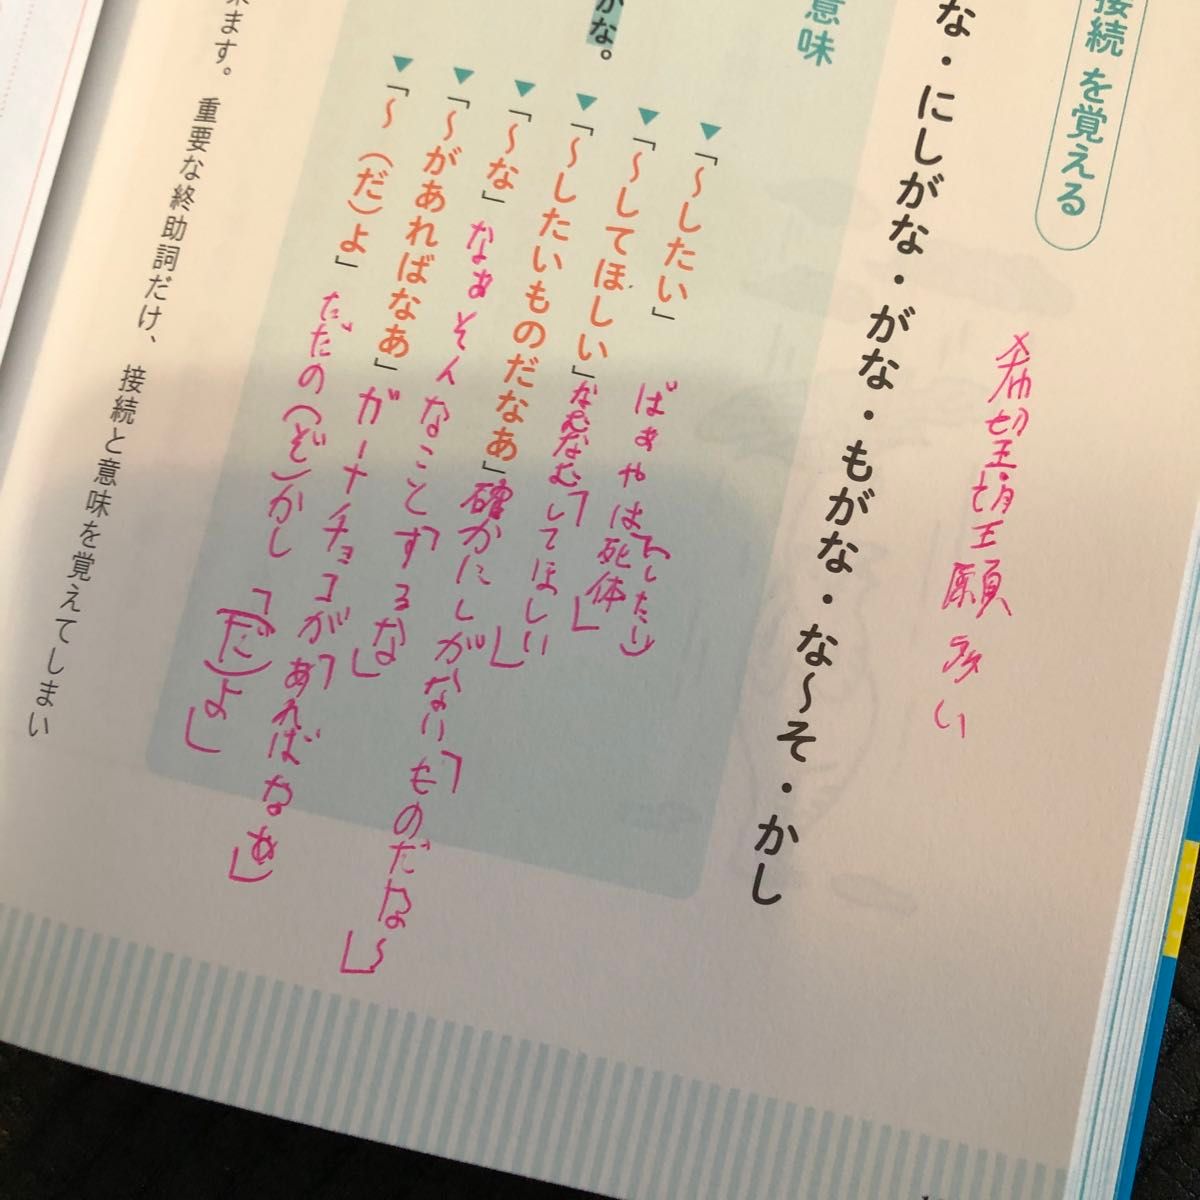 接続を覚える
希望、切望、願望多い
な・にしがな・がな・もがな・な～そ・かし
意味
▼「～したい」
ばぁやは死体(したい)
▼「～してほしい」なむなむ「してほしい」
▼「～したいものだなあ」確かにしがない「ものだな～」
▼「～な」なぁそんなこと「するな」
▼「～があればなあ」ガーナチョコが「あればなぁ」
▼「～(だ)よ」ただの(ぞ)かし「(だ)よ」
かな。
ます。重要な終助詞だけ、接続と意味を覚えてしまい